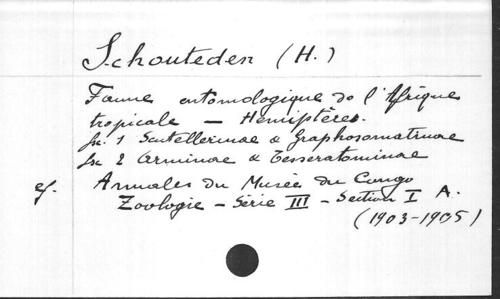 Schouteden (H.)
Faune entomologique de l'Afrique
tropicale — Hémiptères.
fsc. 1 Scutellerinae & Graphosomatinae
fsc 2 Arminae & Tesseratominae
cf. Annales du Musée du Congo
Zoologie — Série III — Section I A.
(1903-1905)